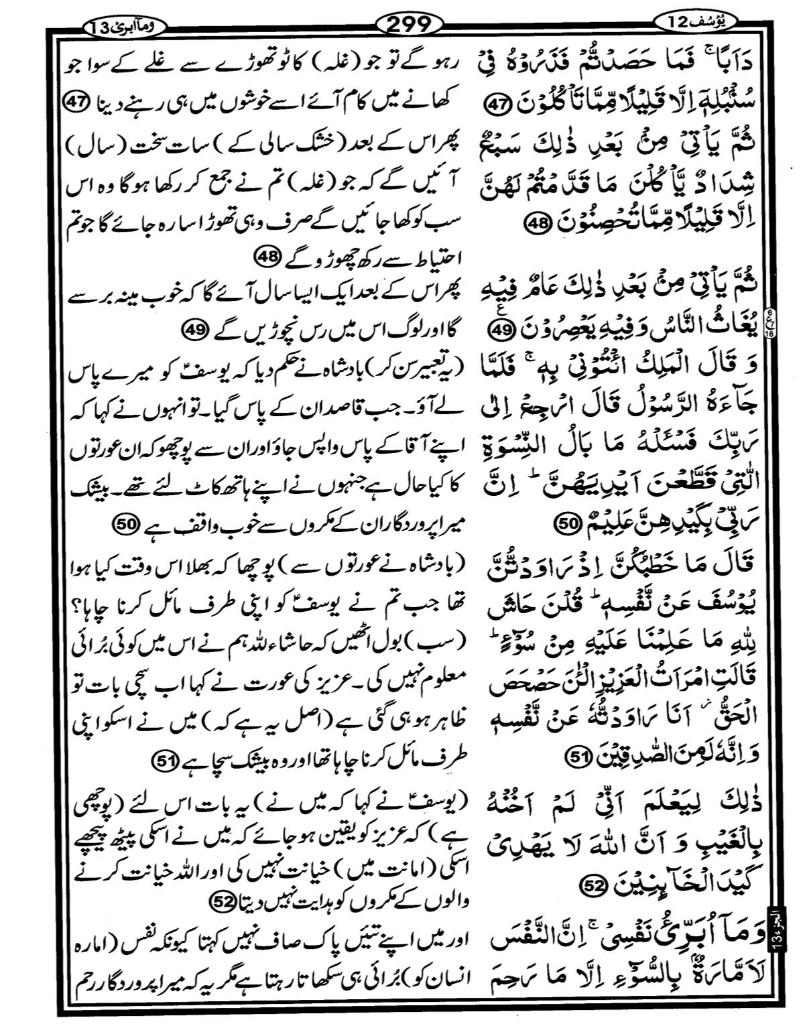 یُوْسُف 12
299
وماابرئ 13
دَاَبًا ۚ فَمَا حَصَدْتُّمْ فَذَرُوْهُ فِیْ
سُنْۢبُلِهٖۤ اِلَّا قَلِیْلًا مِّمَّا تَاْكُلُوْنَ 47
ثُمَّ یَاْتِیْ مِنْۢ بَعْدِ ذٰلِكَ سَبْعٌ
شِدَادٌ یَّاْكُلْنَ مَا قَدَّمْتُمْ لَهُنَّ
اِلَّا قَلِیْلًا مِّمَّا تُحْصِنُوْنَ 48
ثُمَّ یَاْتِیْ مِنْۢ بَعْدِ ذٰلِكَ عَامٌ فِیْهِ
یُغَاثُ النَّاسُ وَ فِیْهِ یَعْصِرُوْنَ 49 ع
وَ قَالَ الْمَلِكُ ائْتُوْنِیْ بِهٖ ۚ فَلَمَّا
جَآءَهُ الرَّسُوْلُ قَالَ ارْجِعْ اِلٰی
رَبِّكَ فَسْـَٔلْهُ مَا بَالُ النِّسْوَةِ
الّٰتِیْ قَطَّعْنَ اَیْدِیَهُنَّ ؕ اِنَّ
رَبِّیْ بِكَیْدِهِنَّ عَلِیْمٌ 50
قَالَ مَا خَطْبُكُنَّ اِذْ رَاوَدْتُّنَّ
یُوْسُفَ عَنْ نَّفْسِهٖ ؕ قُلْنَ حَاشَ
لِلّٰهِ مَا عَلِمْنَا عَلَیْهِ مِنْ سُوْٓءٍ ؕ
قَالَتِ امْرَاَتُ الْعَزِیْزِ الْـٰٔنَ حَصْحَصَ
الْحَقُّ ؗ اَنَا رَاوَدْتُّهٗ عَنْ نَّفْسِهٖ
وَ اِنَّهٗ لَمِنَ الصّٰدِقِیْنَ 51
ذٰلِكَ لِیَعْلَمَ اَنِّیْ لَمْ اَخُنْهُ
بِالْغَیْبِ وَ اَنَّ اللّٰهَ لَا یَهْدِیْ
كَیْدَ الْخَآىِٕنِیْنَ 52
وَ مَاۤ اُبَرِّئُ نَفْسِیْ ۚ اِنَّ النَّفْسَ
لَاَمَّارَةٌۢ بِالسُّوْٓءِ اِلَّا مَا رَحِمَ
رہو گے تو جو (غلہ) کاٹو تھوڑے سے غلے کے سوا جو
کھانے میں کام آئے اسے خوشوں میں ہی رہنے دینا 47
پھر اس کے بعد (خشک سالی کے) سات سخت (سال)
آئیں گے کہ جو (غلہ) تم نے جمع کر رکھا ہوگا وہ اس
سب کو کھا جائیں گے صرف وہی تھوڑا سا رہ جائے گا جو تم
احتیاط سے رکھ چھوڑو گے 48
پھر اس کے بعد ایک ایسا سال آئے گا کہ خوب مینہ برسے
گا اور لوگ اس میں رس نچوڑیں گے 49
(یہ تعبیر سن کر) بادشاہ نے حکم دیا کہ یوسفؑ کو میرے پاس
لے آؤ۔ جب قاصد ان کے پاس گیا۔ تو انہوں نے کہا کہ
اپنے آقا کے پاس واپس جاؤ اور ان سے پوچھو کہ ان عورتوں
کا کیا حال ہے جنہوں نے اپنے ہاتھ کاٹ لئے تھے۔ بیشک
میرا پروردگار ان کے مکروں سے خوب واقف ہے 50
(بادشاہ نے عورتوں سے) پوچھا کہ بھلا اس وقت کیا ہوا
تھا جب تم نے یوسفؑ کو اپنی طرف مائل کرنا چاہا؟
(سب) بول اٹھیں کہ حاشاء للہ ہم نے اس میں کوئی بُرائی
معلوم نہیں کی۔ عزیز کی عورت نے کہا اب سچی بات تو
ظاہر ہو ہی گئی ہے (اصل یہ ہے کہ) میں نے اسکو اپنی
طرف مائل کرنا چاہا تھا اور وہ بیشک سچا ہے 51
(یوسفؑ نے کہا کہ میں نے) یہ بات اس لئے (پوچھی
ہے) کہ عزیز کو یقین ہو جائے کہ میں نے اسکی پیٹھ پیچھے
اسکی (امانت میں) خیانت نہیں کی اور اللہ خیانت کرنے
والوں کے مکروں کو ہدایت نہیں دیتا 52
اور میں اپنے تئیں پاک صاف نہیں کہتا کیونکہ نفس (امارہ
انسان کو) بُرائی ہی سکھاتا رہتا ہے مگر یہ کہ میرا پروردگار رحم
الجزء 13